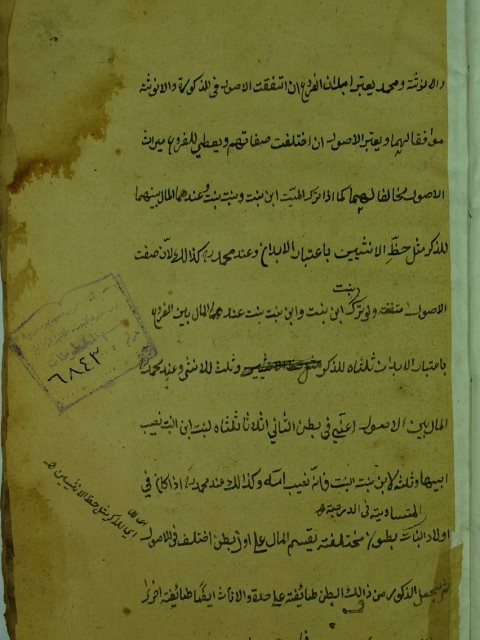 والانوثة ومحمد يعتبر ابدان الفروع ان اتفقت الاصول في الذكورة والانوثة
موافقا لهما ويعتبر الاصول ان اختلفت صفاتهم ويعطي للفروع ميراث
الاصول مخالفا لهما كما اذا ترك الميت ابن بنت وبنت بنت وعندهما المال بينهما
للذكر مثل حظ الانثيين باعتبار الابدان وعند محمد كذالك لان صفت
الاصول متفقة ولو ترك بنت ابن بنت وابن بنت بنت عندهما المال بين الفروع
باعتبار الابدان ثلثاه للذكر وثلث للانثى وعند محمد
المال بين الاصول اعني في بطن الثاني اثلاثا ثلثاه لبنت ابن البنت نصيب
ابيها وثلثه لابن بنت البنت فانه نصيب امه وكذالك عند محمد اذا كان في
المتساوية في الدرجة
اولاد البنات بطون مختلفة يقسم المال على اول بطن اختلف في الاصول
ثم يجعل الذكور من ذالك البطن طائفة على حدة والاناث ايضا طائفة اخرى
اي للذكر مثل حظ الانثيين
٦٨٤٣